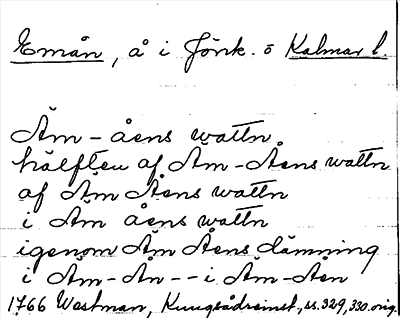 Emån, å i Jönk. o Kalmar l.
Äm - åens wattn
hälften af Äm - Åens wattn
af Äm Åens wattn
i Äm åens wattn
igenom Äm Åens dämning
i Äm - Ån - - i Äm - Åen
1766 Westman, Kungsådreinst., ss. 329, 330. orig.